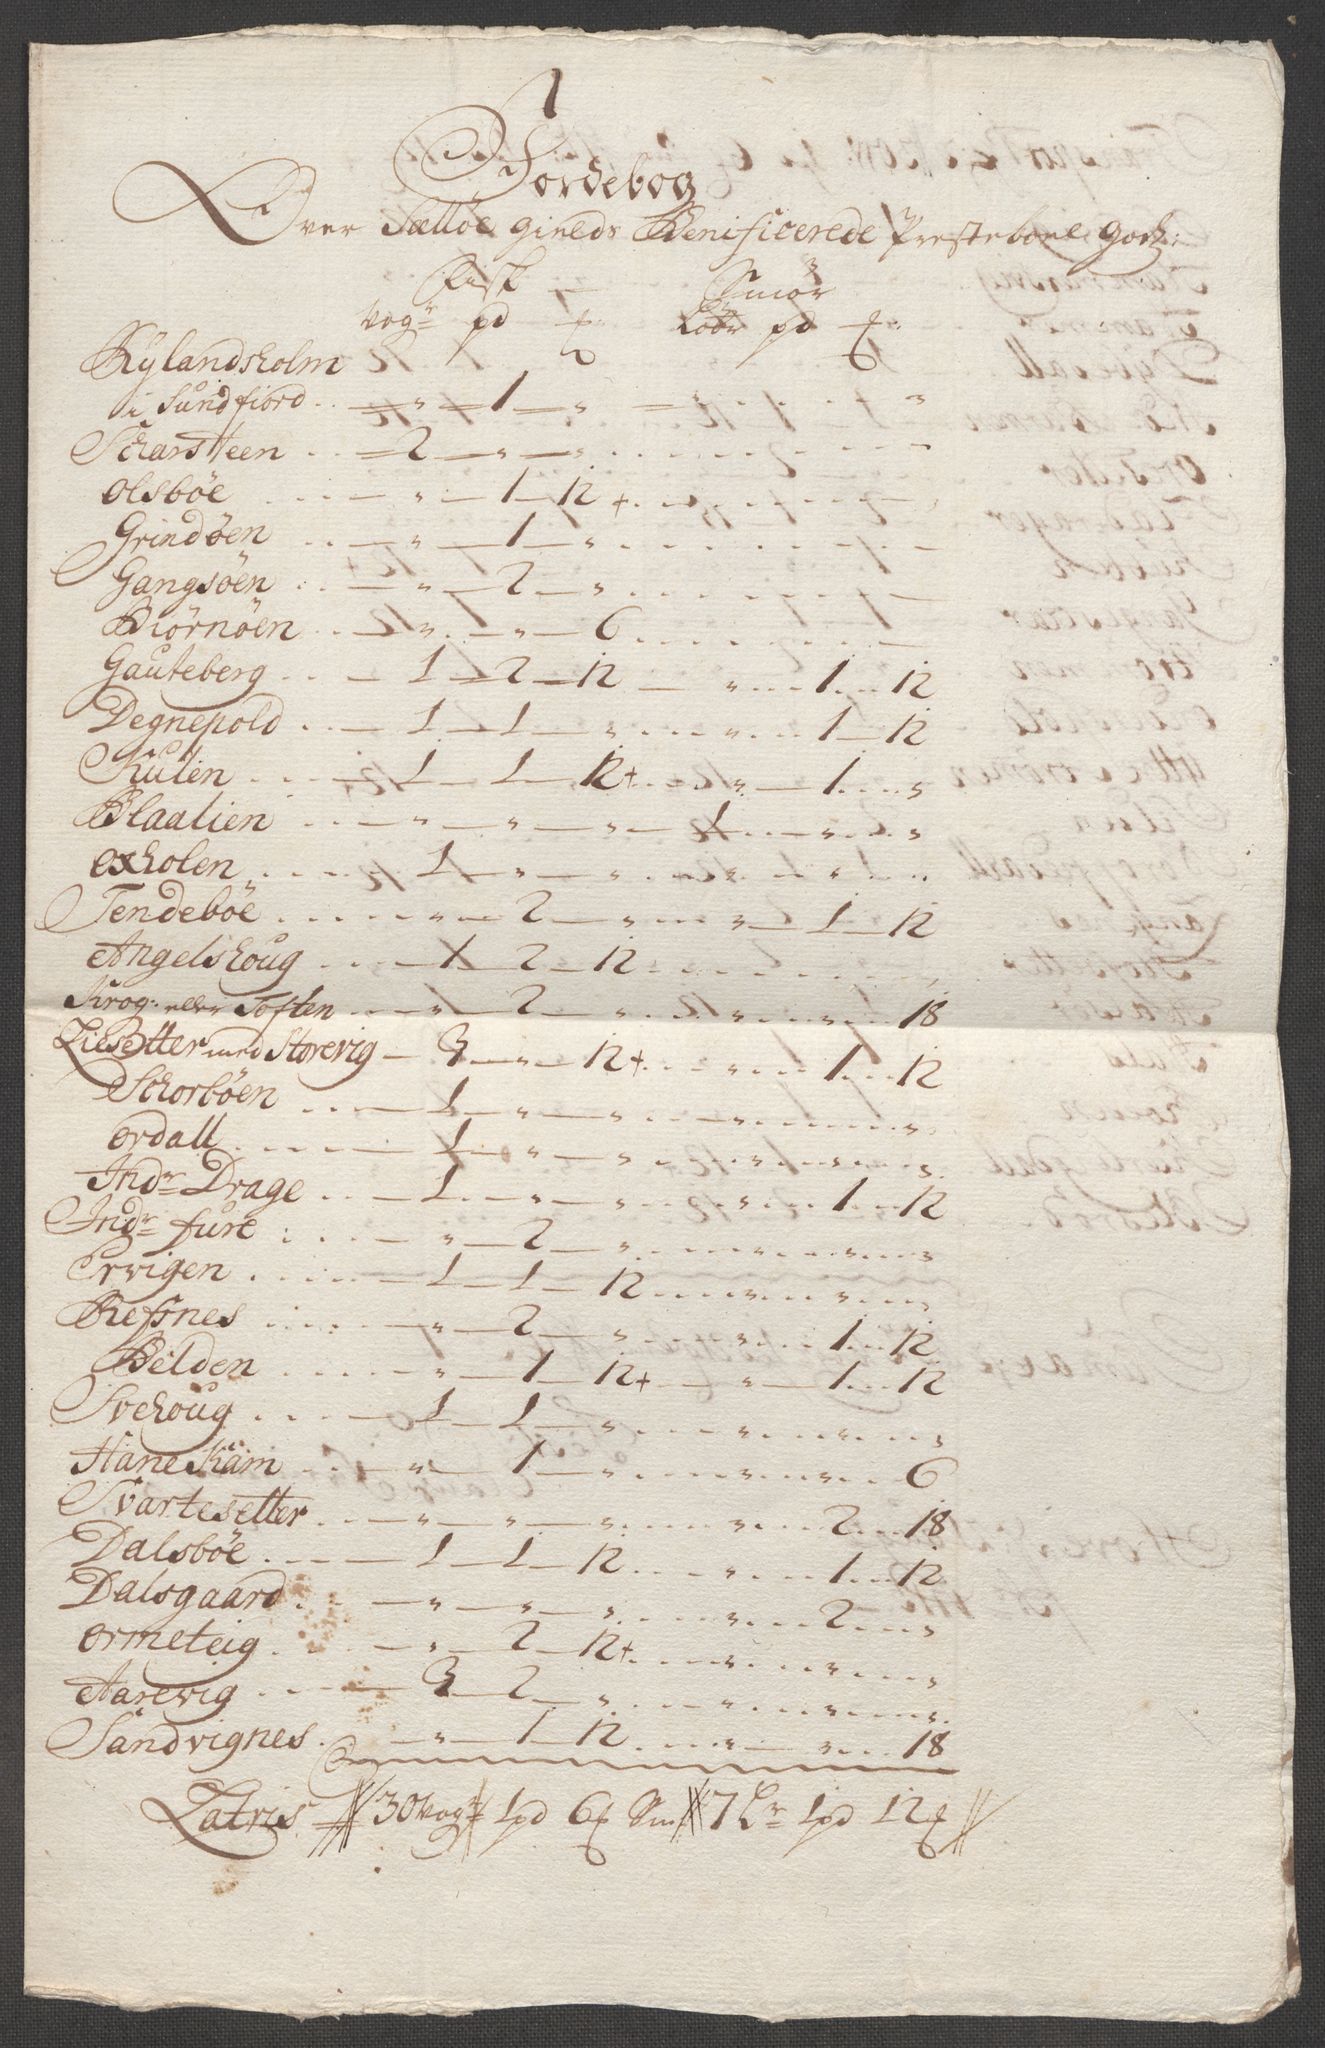 1
Jordebog
Over Sælløe gields Benificerede Prestebole godtz
Fisk Smör
Vog pd Löbr pd
Rylandsholm
i Sundfiord " 1 " "
Scharsteen 2 " "
Olsböe " 1 12+
Grindöen " 1 "
Gangsöen " 2 "
Biörnöen " " 6
Gauteberg 1 2 12 " 1 12
Degnepold 1 1 " " 1 12
Kulen 1 1 12+ " 1 "
Blaalien " " " 1 " "
Oxholen 1 " " " " "
Tendeböe " 2 " " 1 12
Angelshoug 1 2 12
Krog eller Toften " 2 " " " 18
Liesetter med Storevig 3 " 12+ " 1 12
Schorböen 1 " " " " "
Ordall 1 " " " " "
Indr Drage 1 " " " 1 12
Indr fure " 2 " " " "
Ervigen 1 1 12 " " "
Refsnes " 2 " " 1 12
Belden " 1 12+ " 1 12
Svehoug 1 1 " " " "
Hanekam " 1 " " " 6
Svartesetter " " " " 2 18
Dalsböe 1 1 12 " 1 12
Dalsgaard " " " " 2 "
Ormeteig " 2 12+ " " "
Aarevig 3 2 " " " "
Sandvignes " 1 12 " " 18
Latris 30 Vogr 1pd 6 Sm 7 Lr 1pd 12